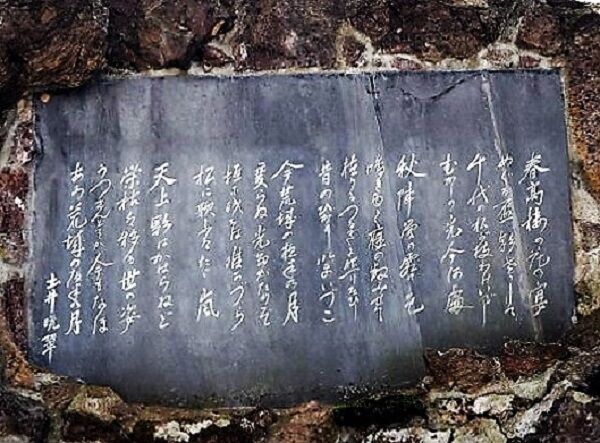 春高楼の花の宴
めぐる盃影さして
千代の松が枝わけ出でし
むかしの光今何處
秋陣営の霜の色
鳴き行く雁の数見せて
植うるつるぎに照りそひし
昔のひかり今いづこ
今荒城の夜半の月
変らぬ光たがためぞ
垣に残るは唯かづら
松に歌ふはただ嵐
天上影はかはらねど
榮枯は移る世の姿
うつさんとてか今もなほ
あゝ荒城の夜半の月
土井晩翠